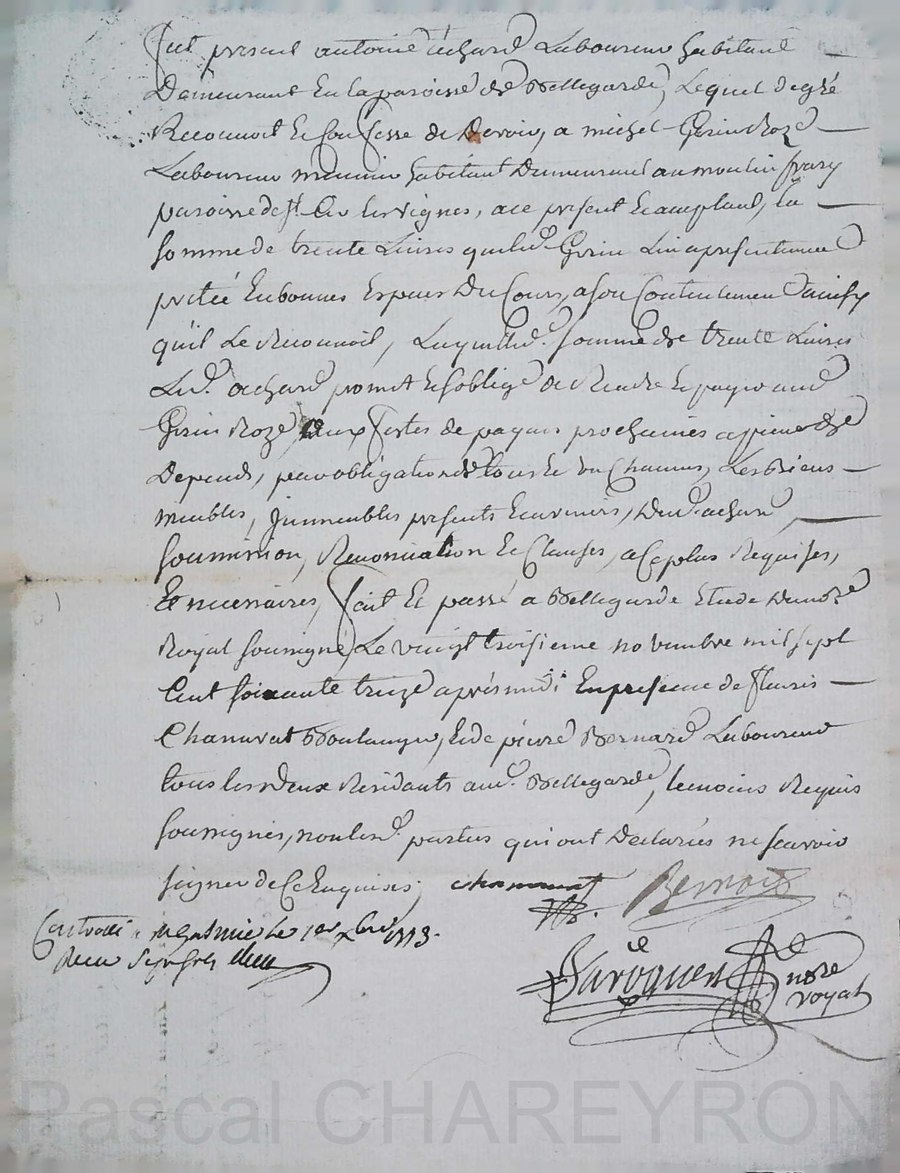 fut present antoine achard Laboureur habitant
Demeurant En la paroisse de Bellegarde, Lequel de gré
Reconnoit Et Confesse de Devoir, a michel Gerin Roze
Laboureur meunier habitant Demeurant au moulin
paroisse de st Cir les vignes, a ce present Et acceptant, la
somme de trente Livres que led. Gerin Lui a presentement
pretée En bonnes Especes Du Cours, a son Contentement ainsy
qu'il Le Reconnoit, Laquelle d. somme de trente Livres
Led. achard promet Et soblige de Rendre Et payer aud.
Gerin Roze, aux festes de paques prochaines a peine de
Depends, par obligation de tous Et un Chacuns, Les Biens
meubles, Immeubles presents Et avenirs, Dud. achard
soummission, Renonciation Et Clauses, a Ce plus Requises,
Et necessaires, fait Et passé a Bellegarde Etude Du nore
Royal soussigné, Le vingt troisieme novembre mil sept
Cent soixante treize après midi En presence de fleuris
Chanavat Boulanger, Et de pierre Bernard Laboureur
tous les Deux Residants aud. Bellegarde, temoins Requis
soussignés, non lesd. parties qui ont Declarées ne scavoir
signer de Ce Enquises,
Chanavat
Bernard
Controllé a le 1er xbre 1773.
Recu sept sols
nore
royal
Pascal CHAREYRON